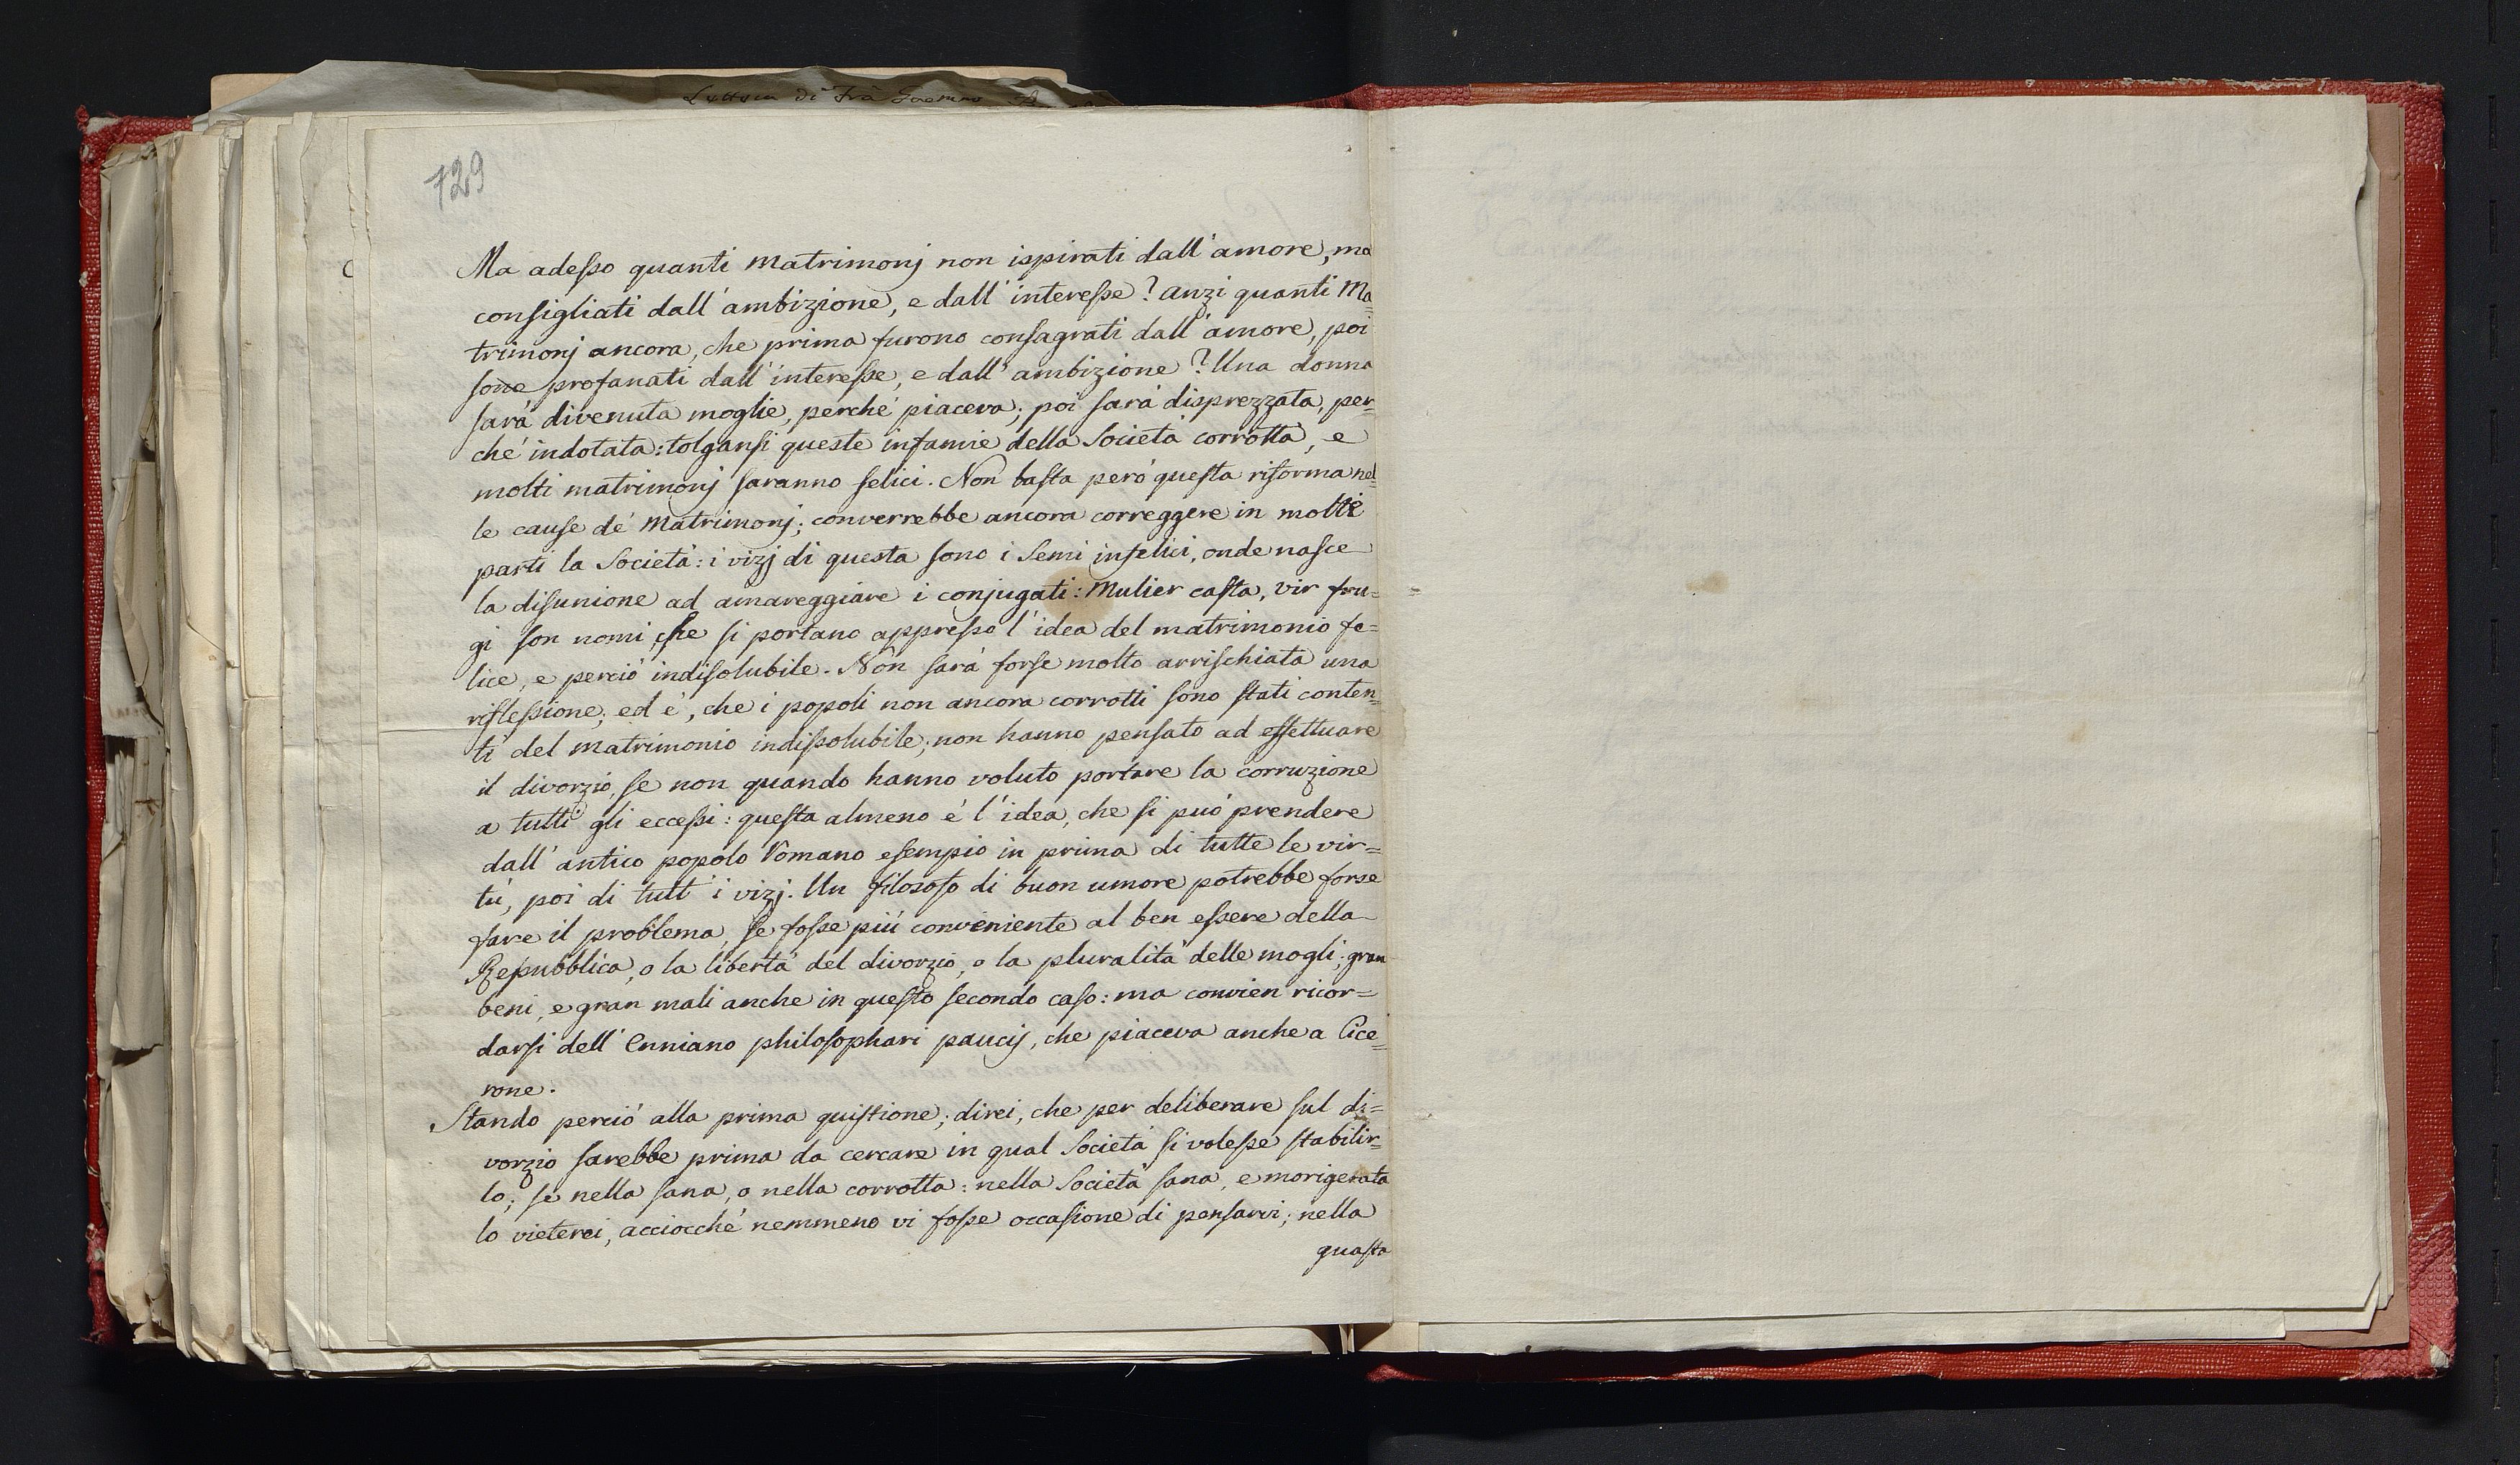 Lettera di Frà
729
Ma adesso quanti Matrimonj non ispirati dall'amore, ma
consigliati dall'ambizione, e dall'interesse? anzi quanti Ma=
trimonj ancora, che prima furono consagrati dall'amore, poi
sono profanati dall'interesse, e dall'ambizione? Una donna
sarà divenuta moglie, perchè piaceva; poi sarà disprezzata, per=
chè indotata: tolgansi queste infamie della Società corrotta, e
molti matrimonj saranno felici. Non basta però questa riforma nel=
le cause de' Matrimonj; converrebbe ancora correggere in molte
parti la Società: i vizj di questa sono i Semi infelici, onde nasce
la disunione ad amareggiare i conjugati: Mulier casta, vir fru=
gi son nomi che si portano appresso l'idea del matrimonio fe=
lice, e perciò indisolubile. Non sarà forse molto arrischiata una
riflessione; ed è, che i popoli non ancora corrotti sono stati conten=
ti del matrimonio indissolubile; non hanno pensato ad effettuare
il divorzio, se non quando hanno voluto portare la corruzione
a tutti gli eccessi: questa almeno è l'idea, che si può prendere
dall'antico popolo Romano esempio in prima di tutte le vir=
tù, poi di tutt'i vizj. Un filosofo di buon umore potrebbe forse
fare il problema, se fosse più conveniente al ben essere della
Repubblica, o la libertà del divorzio, o la pluralità delle mogli; gran
beni, e gran mali anche in questo secondo caso: ma convien ricor=
darsi dell'Enniano philosophari paucis, che piaceva anche a Cice=
rone.
Stando perciò alla prima quistione; direi, che per deliberare sul di=
vorzio sarebbe prima da cercare in qual Società si volesse stabilir=
lo; se nella sana, o nella corrotta: nella Società sana, e morigerata
lo vieterei, acciocchè nemmeno vi fosse occasione di pensarvi; nella
guasta